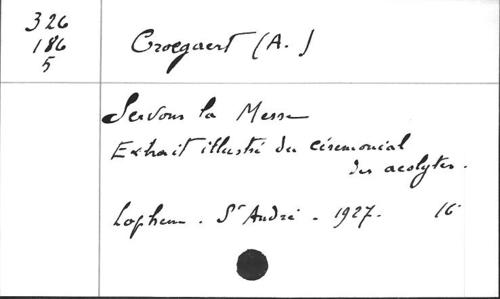 326
186
5
Croegaert (A.)
Servons la Messe
Extrait illustré du cérémonial
des acolytes.
Lophem. St André. 1927. 16